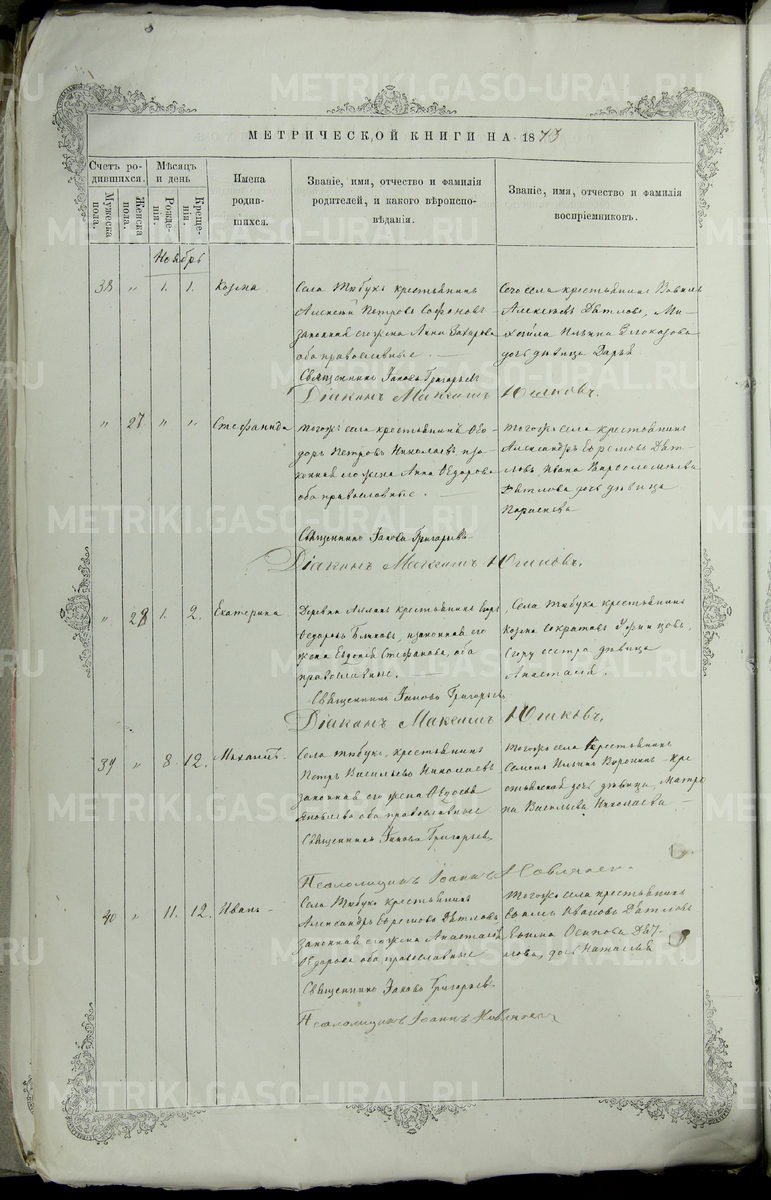 МЕТРИЧЕСКОЙ КНИГИ НА 1873
Счетъ ро-
дившихся.
Мужеска
пола.
Женска
пола.
Мѣсяцъ
и день
Рожде-
нія.
Креще-
нія.
Имена
родив-
шихся.
Званіе, имя, отчество и фамилія
родителей, и какого вѣроиспо-
вѣданія.
Званіе, имя, отчество и фамилія
воспріемниковъ.
Ноябрь
38 " 1. 1. Козма
Села Тюбукъ крестьянинъ
Алексѣй Петровъ Софоновъ
законная его жена Анна Захарова
оба православные.
Священникъ Іаковъ Григорьевъ
Діаконъ Максимъ Юшковъ.
Сего села крестьянинъ
Алексѣевъ Дѣтловъ, Ми-
хаила Ильина
дочь дѣвица Дарья
" 27 " " Стефанида
Тогожъ села крестьянинъ Ѳео-
доръ Петровъ Николаевъ, и за-
конная его жена Анна Ѳедорова
оба православные.
Священникъ Іаковъ Григорьевъ
Діаконъ Максимъ Юшковъ.
Тогожъ села крестьянинъ
Александръ Ефремовъ Дѣт-
ловъ Ивана Варфоломеева
Дѣтлова дочь дѣвица
" 28 1. 2. Екатерина
Деревни крестьянинъ
Ѳедоровъ и законная его
жена Евдокія Стефанова, оба
православные.
Священникъ Іаковъ Григорьевъ
Діаконъ Максимъ Юшковъ.
Села Тюбука крестьянинъ
Козма Сократовъ
сестра дѣвица
Анастасія.
39 " 8 12. Михаилъ.
Села Тюбукъ, крестьянинъ
Петръ Васильевъ Николаевъ
законная его жена Ѳедосья
Яковлева оба православные
Священникъ Іаковъ Григорьевъ
Псаломщикъ Іоаннъ
Тогожъ села крестьянинъ
Семенъ Ильинъ Воронинъ кре-
стьянская дочь дѣвица, Матре
на Васильева Николаева
40 " 11. 12. Иванъ
Села Тюбукъ крестьянинъ
Александръ Ефремовъ Дѣтловъ
законная его жена Анастасія
Ѳедорова оба православные
Священникъ Іаковъ Григорьевъ
Псаломщикъ Іоаннъ
Тогожъ села крестьянинъ
Ивановъ Дѣтловъ
Осипова Дѣт-
лова, дочь Наталья
METRIKI.GASO-URAL.RU